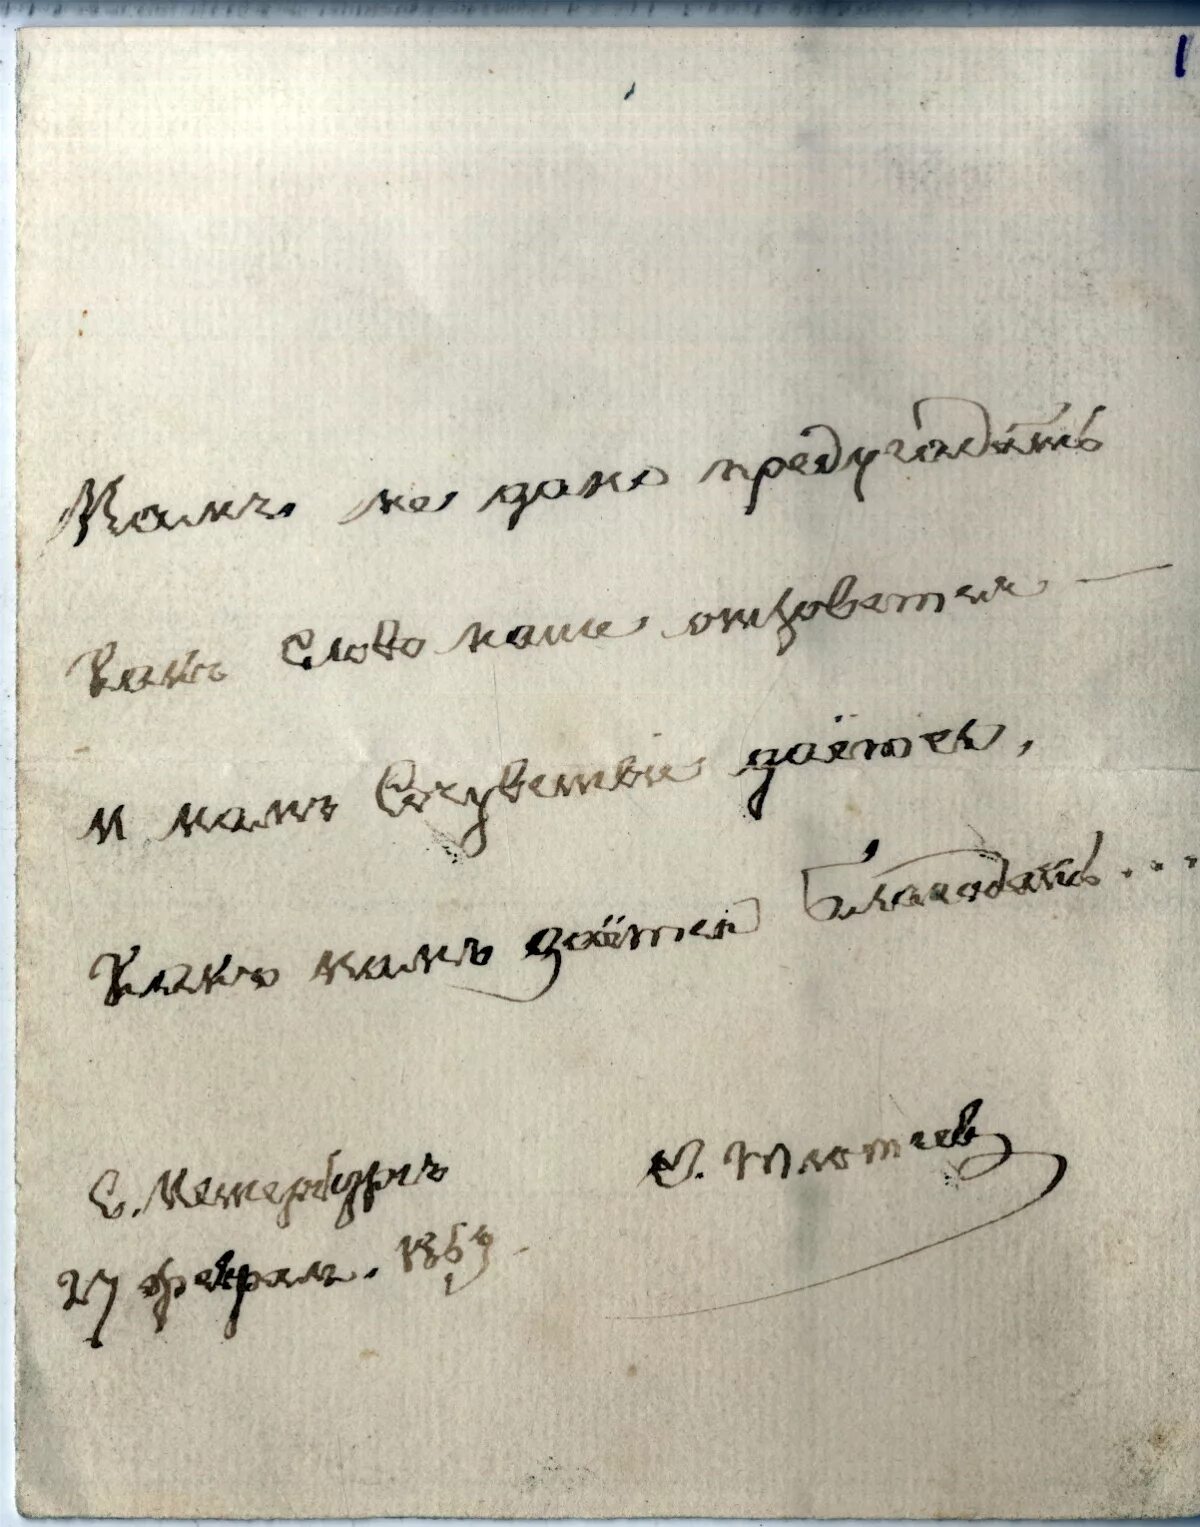 1
Намъ не дано предугадать
Какъ слово наше отзовется —
и намъ Сочувствіе даётся,
Какъ намъ даётся Благодать...
С. Петербургъ
27 февраля. 1869
Ѳ. Тютчевъ